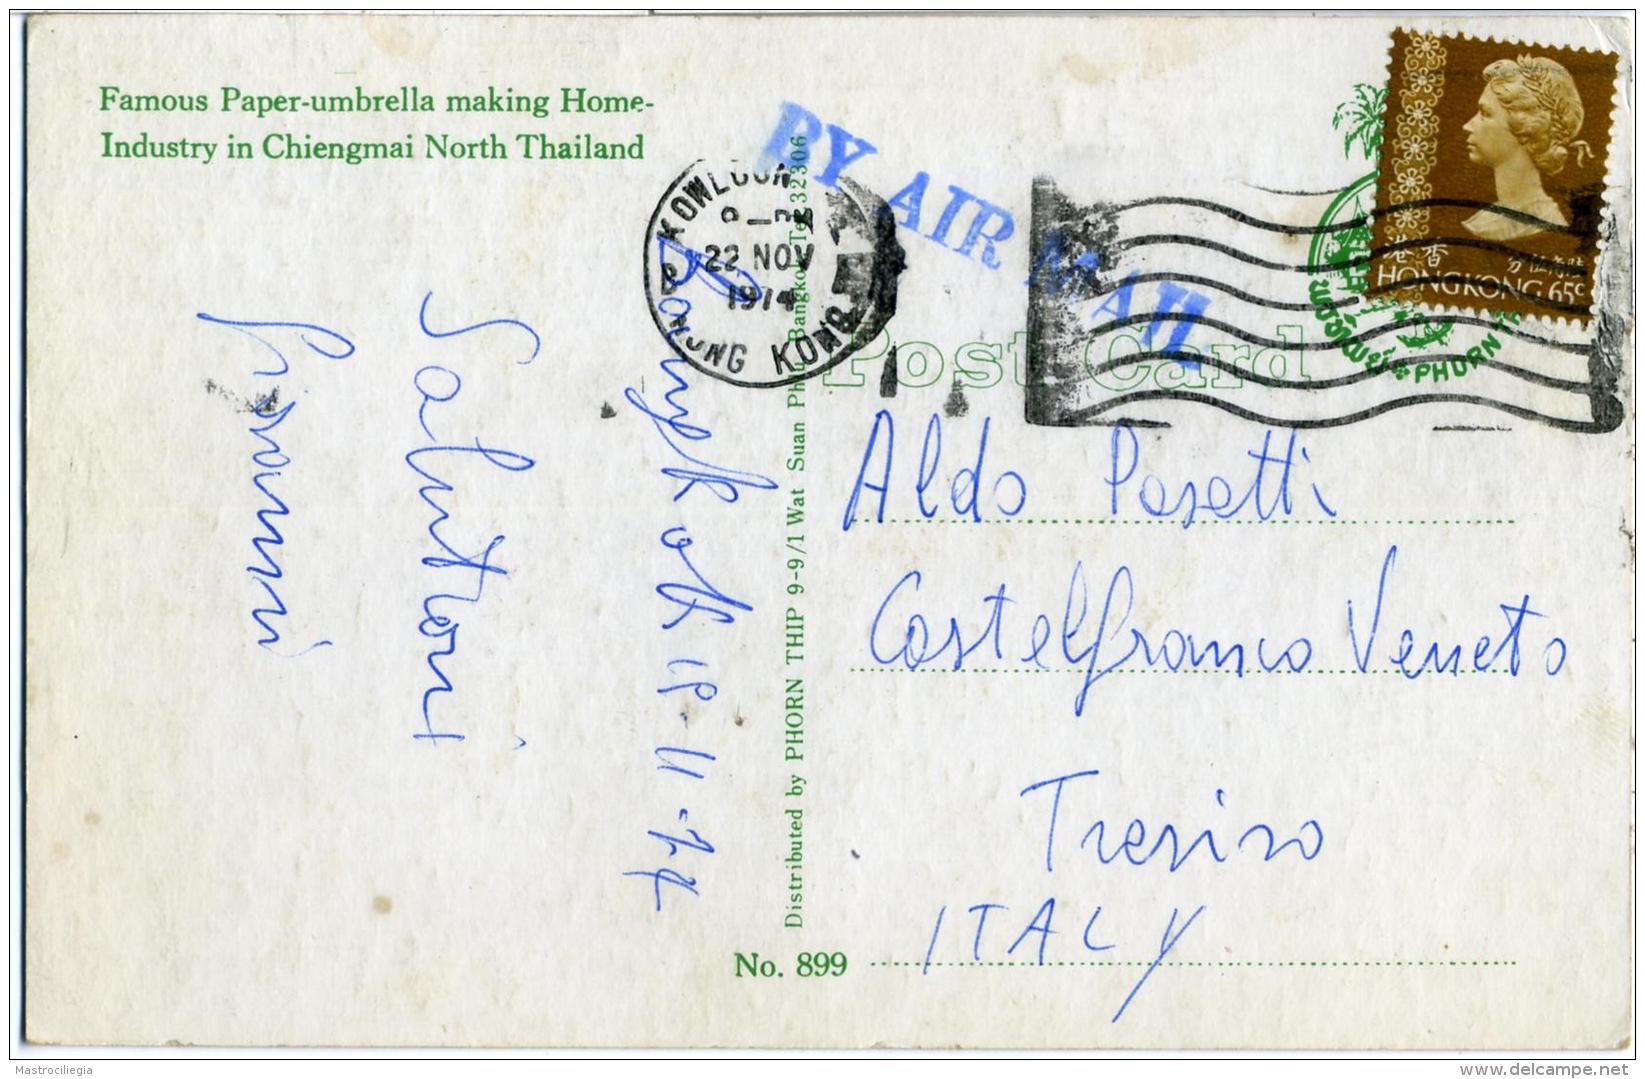 Famous Paper-umbrella making Home-
Industry in Chiengmai North Thailand
BY AIR MAIL
KOWLOON
22 NOV
1974
HONG KONG
香港
HONG KONG 65¢
PHORN
Post Card
Bangkok
Saluti
Distributed by PHORN THIP 9-9/1 Wat Suan Phlu Bangkok Tel. 32306
Aldo Posetti
Castelfranco Veneto
Treviso
ITALY
No. 899
Mastrociliegia
www.delcampe.net